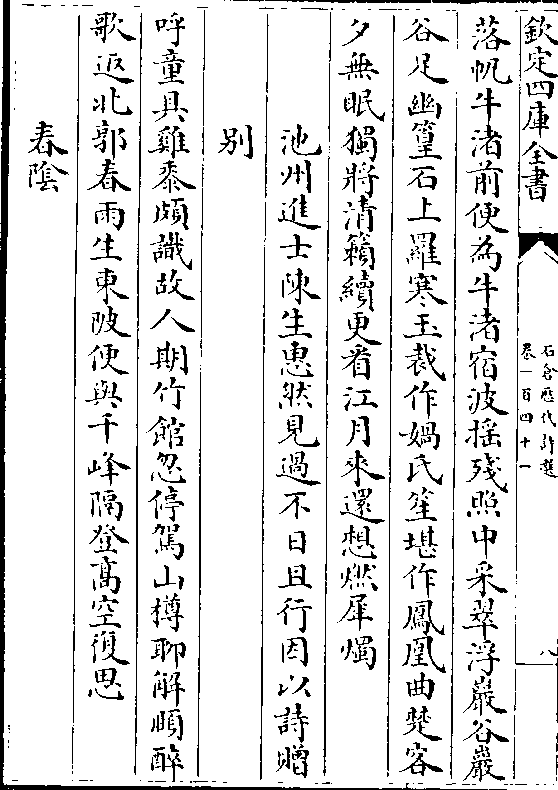 欽定四庫全書
石倉歷代詩選
卷一百四十一
八
落帆牛渚前便為牛渚宿波搖殘照中采翠浮巖谷巖
谷足幽篁石上羅寒玉裁作媧氏笙堪作鳳凰曲楚客
夕無眠獨將清籟續更看江月來還想燃犀燭
池州進士陳生惠然見過不日且行因以詩贈
別
呼童具雞黍頗識故人期竹館忽停駕山樽聊解頤醉
歌返北郭春雨生東陂便與千峰隔登髙空復思
春陰